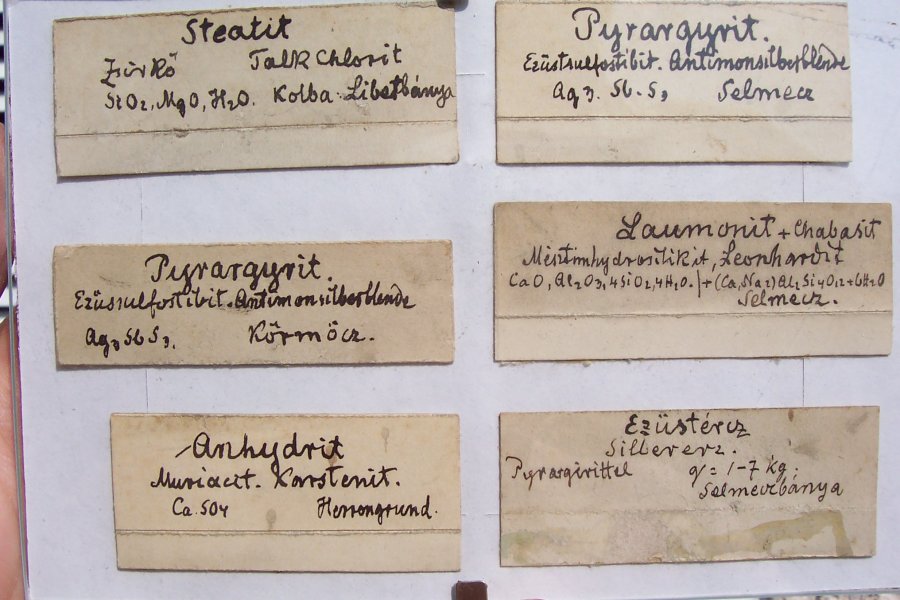 Steatit
Zsirkő Talk Chlorit
SiO2, MgO, H2O. Kolba. Libetbánya
Pyrargyrit.
Ezüstsulfostibit. Antimonsilberblende
Ag3. Sb. S3 Selmecz
Pyrargyrit.
Ezüssulfostibit. Antimonsilberblende
Ag3 Sb S3. Körmöcz.
Laumonit + Chabasit
Leonhardit
CaO, Al2O3, 4SiO2, 4H2O. + (Ca, Na2) Al2 Si4 O12 + 6H2O
Selmecz.
Anhydrit
Muriacit. Karstenit.
Ca. SO4 Herrengrund.
Ezüstércz
Silbererz.
Pyrargirittel q = 1-7 kg.
Selmeczbánya